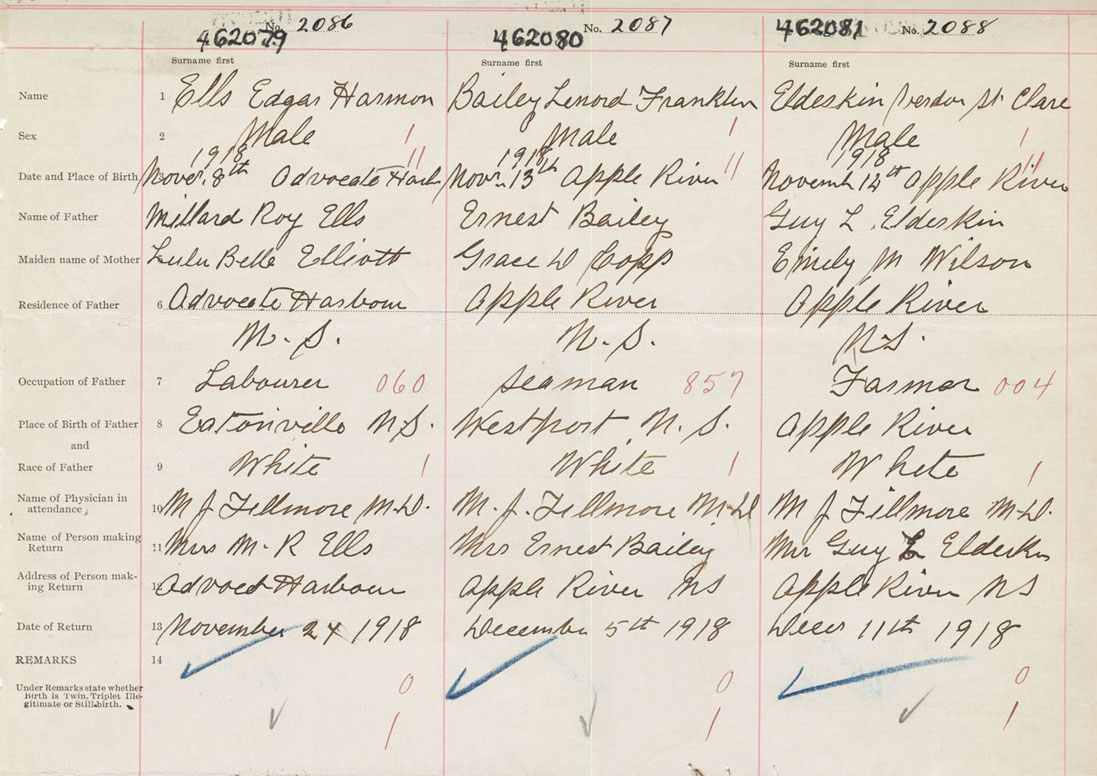 462079 No. 2086 462080 No. 2087 462081 No. 2088
Surname first Surname first Surname first
Name 1 Ells Edgar Harmon Bailey Lenord Franklin Eldeskin Verdon St Clare
Sex 2 Male 1 Male 1 Male 1
1918 11 1918 11 1918 11
Date and Place of Birth Novr. 8th Advocate Harb Novr. 13th Apple River Novemb 14th Apple River
Name of Father Millard Roy Ells Ernest Bailey Guy L. Eldeskin
Maiden name of Mother Lulu Belle Elliott Grace D Copp Emily M Wilson
Residence of Father 6 Advocate Harbour Apple River Apple River
N. S. N. S. N.S.
Occupation of Father 7 Labourer 060 Seaman 857 Farmer 004
Place of Birth of Father 8 Eatonville N.S. Westport N. S. Apple River
and
Race of Father 9 White 1 White 1 White 1
Name of Physician in
attendance 10 M J Fillmore M.D. M. J. Fillmore M.D M J Fillmore M.D.
Name of Person making
Return 11 Mrs M. R Ells Mrs Ernest Bailey Mrs Guy L Eldeskin
Address of Person mak-
ing Return 12 Advocet Harbour Apple River NS Apple River NS
Date of Return 13 November 24 1918 December 5th 1918 Decer 11th 1918
REMARKS 14
Under Remarks state whether 0 0 0
Birth is Twin, Triplet Ille-
gitimate or Still-birth. 1 1 1